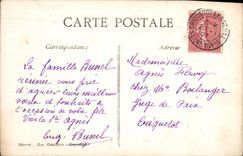 CARTE POSTALE
Correspondance
Adresse
La famille Brunel
vous prie
d'agréer leurs meilleurs
vœux et souhaits à
l'occasion de sa fête
Vive la Ste Agnès
Eug. Brunel
Mademoiselle
Agnès
chez Mr Boulanger
Juge de Paix
Criquetot